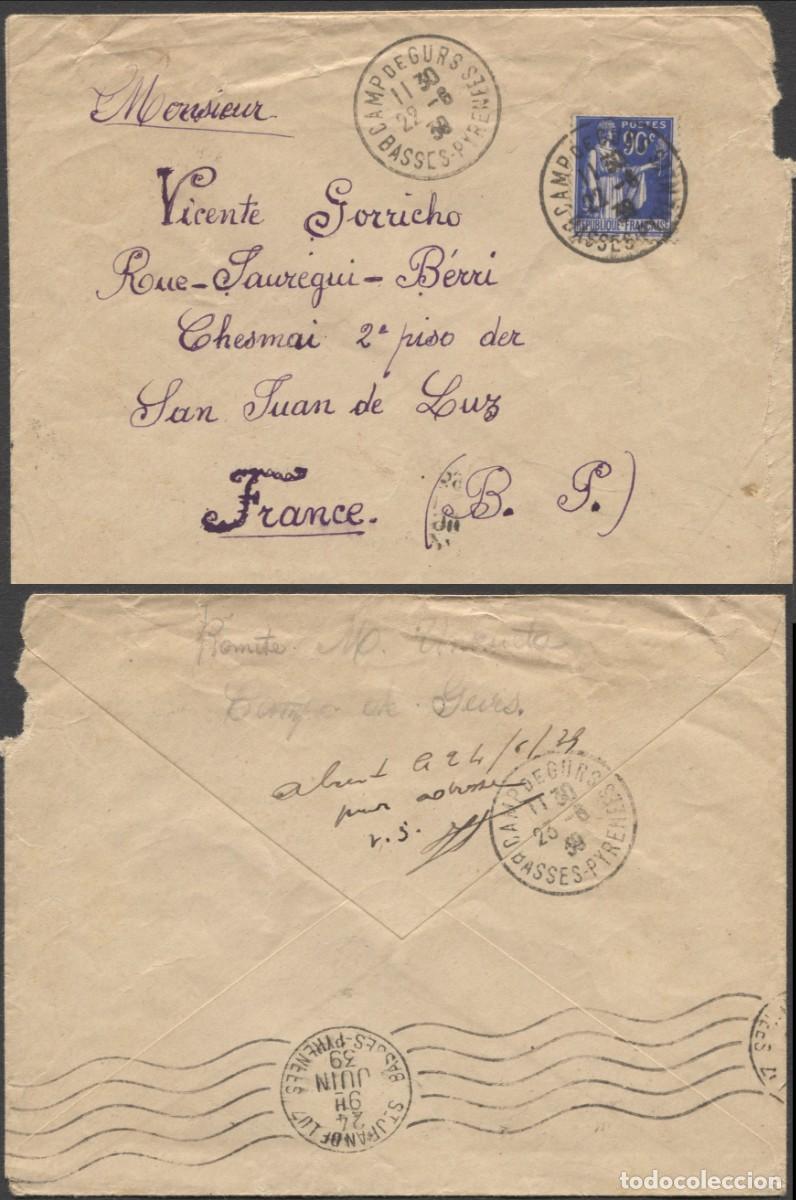 Monsieur
CAMP DE GURS
11 30
22 -6
39
BASSES-PYRENEES
POSTES
90c
REPUBLIQUE-FRANÇAISE
CAMP DE GURS
11 30
22 -6
39
BASSES-PYRENEES
Vicente Gorricho
Rue-Jaurégui-Bérri
Chesmai 2ª piso der
San Juan de Luz
France. (B. P.)
Remite M.
Campo de Gurs.
absent a 24/6/39
pour adresse
v.s.
CAMP DE GURS
11 30
23 -6
39
BASSES-PYRENEES
ST JEAN DE LUZ
24
9H
JUIN
39
BASSES-PYRENEES
todocoleccion